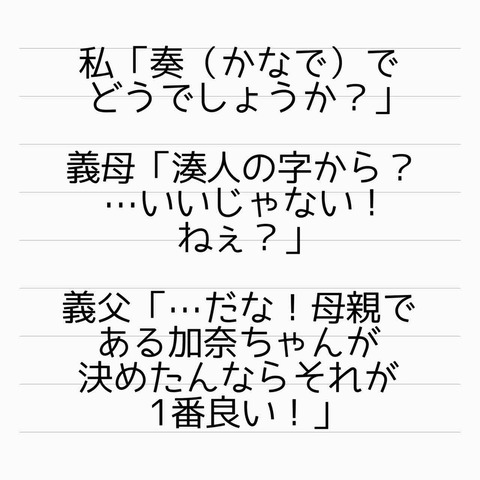 私「奏（かなで）で
どうでしょうか？」
義母「湊人の字から？
…いいじゃない！
ねぇ？」
義父「…だな！母親で
ある加奈ちゃんが
決めたんならそれが
1番良い！」